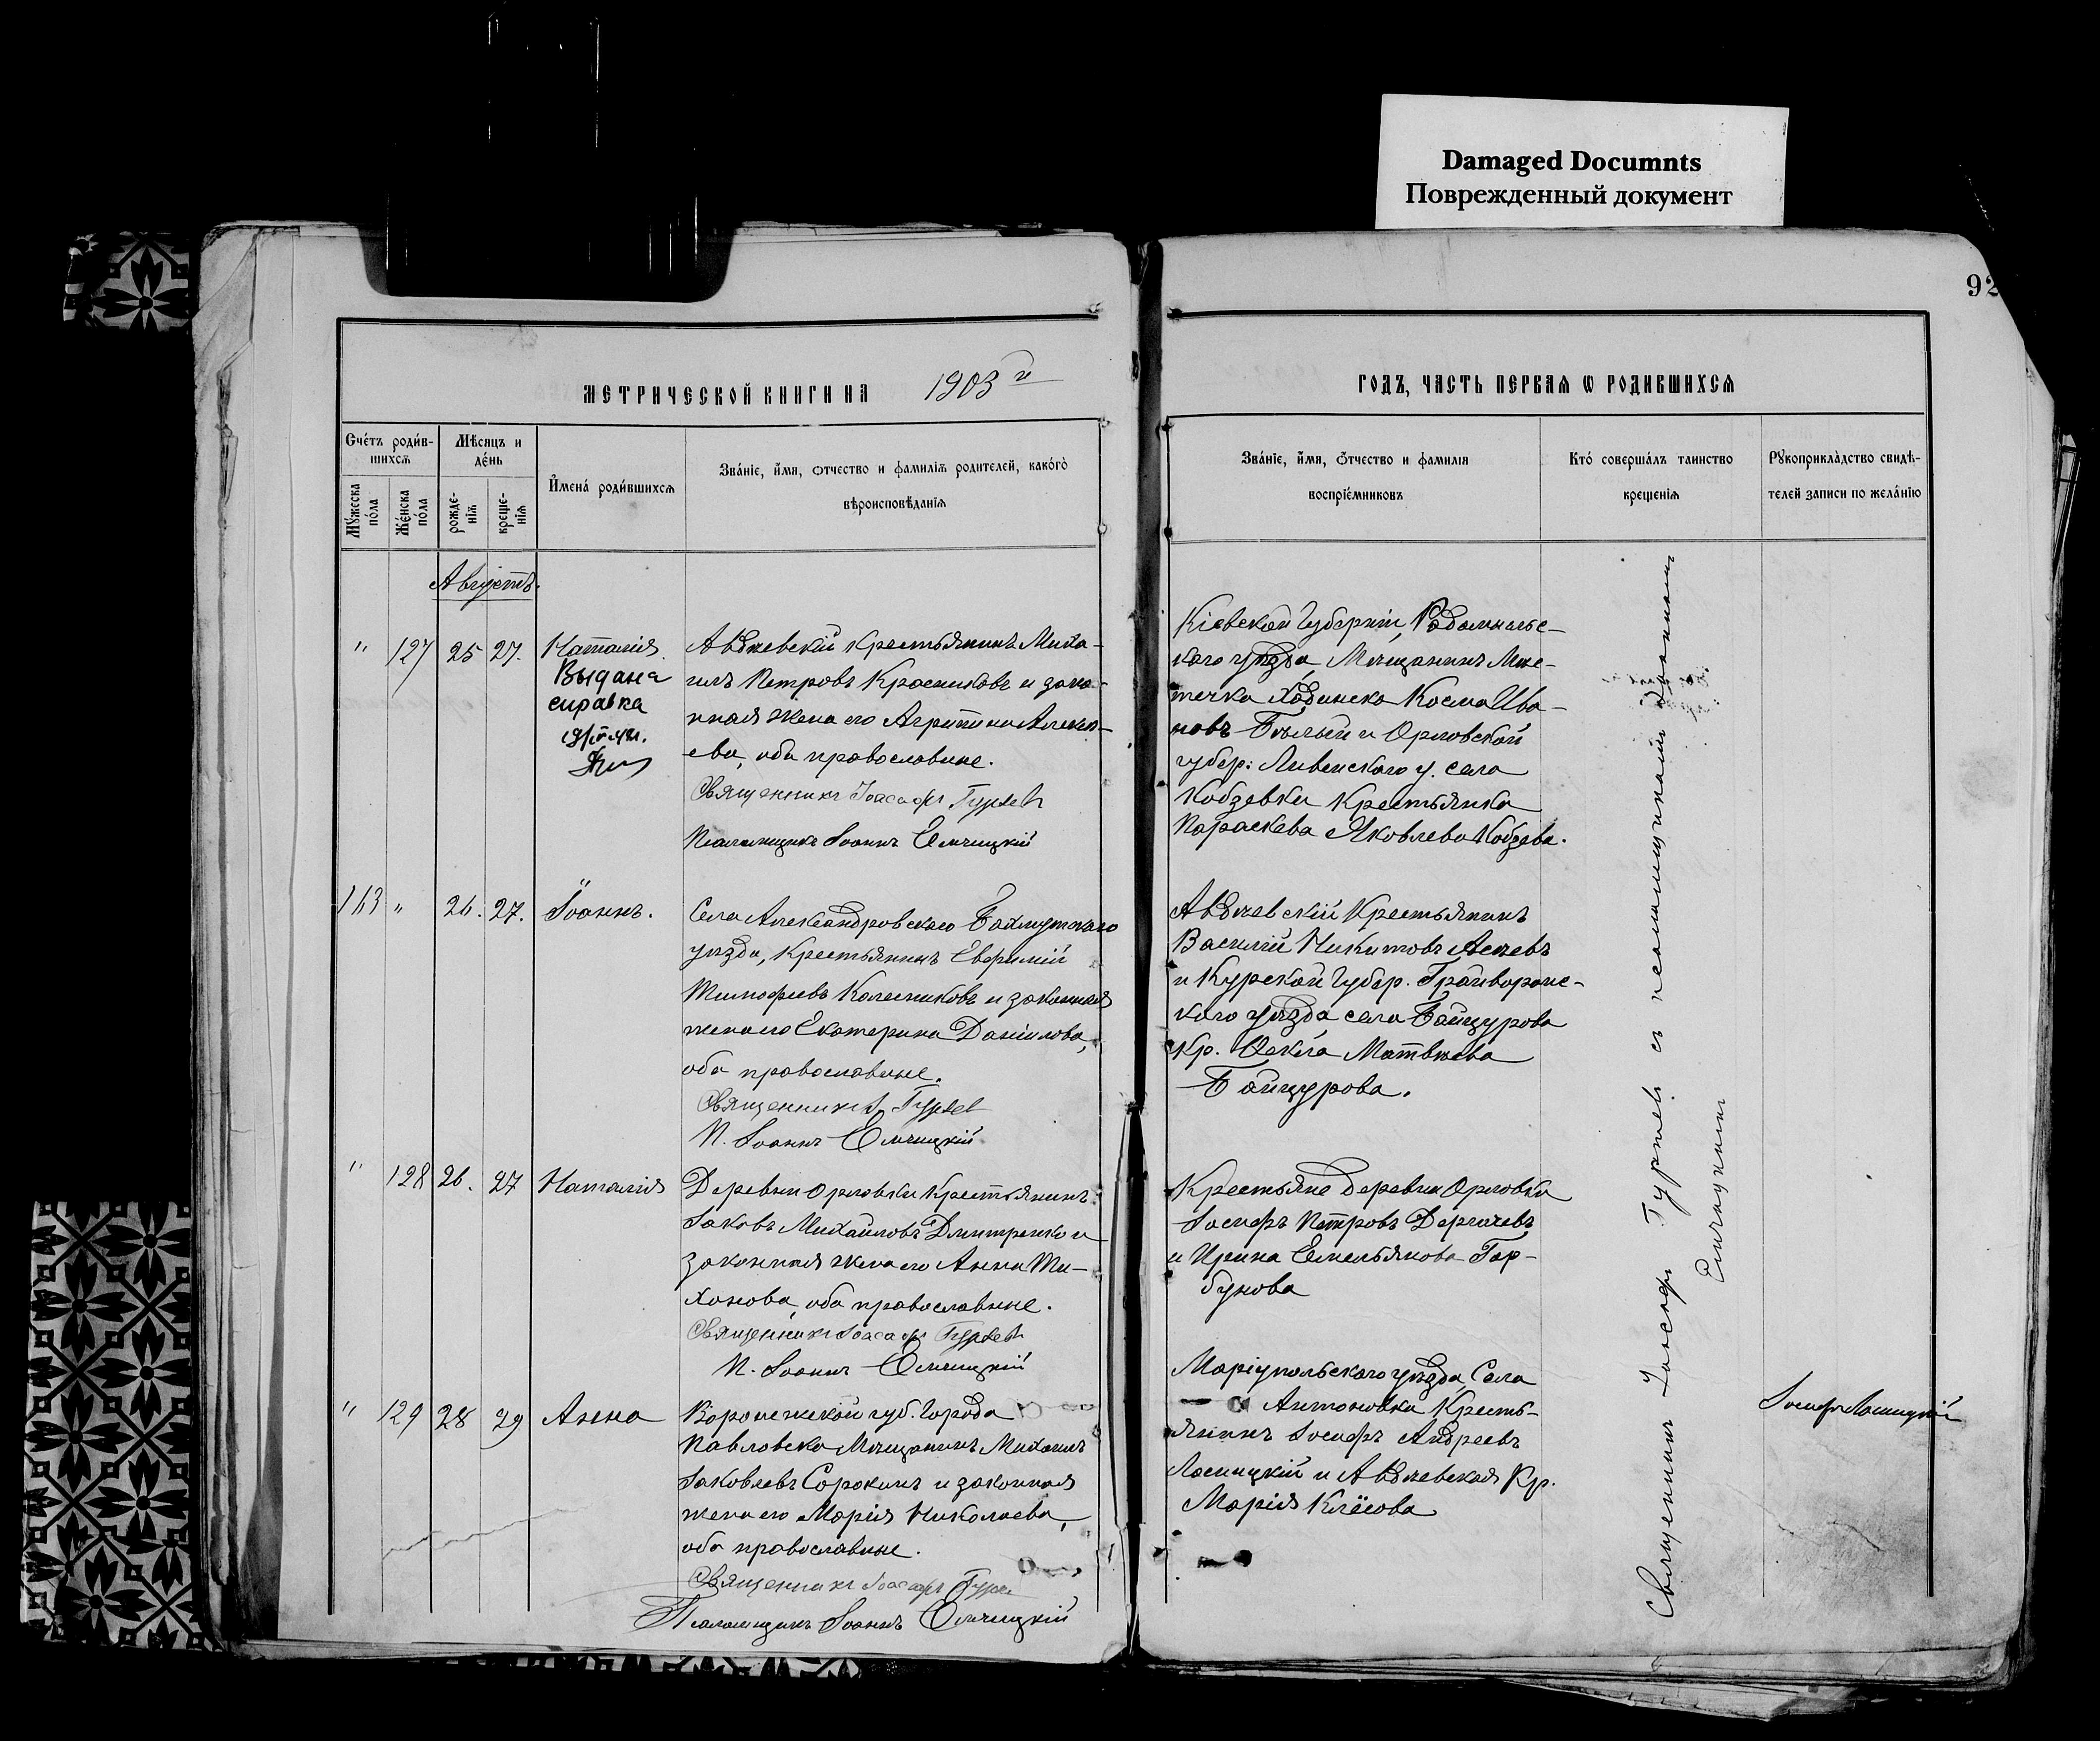 Damaged Documnts
Поврежденный документ
92
МЕТРИЧЕСКОЙ КНИГИ НА 1903 й
ГОДЪ, ЧАСТЬ ПЕРВАѦ Ѡ РОДИВШИХСѦ
Счетъ родив-
шихсѧ
Мужеска пола
Женска пола
Мѣсяцъ и
день
рожде-
нія
креще-
нія
Имена родившихсѧ
Званіе, имя, ѻтчество и фамиліѧ родителей, какогѡ
вѣроисповѣданіѧ
Званіе, имя, ѻтчество и фамиліѧ
воспріемниковъ
Кто совершалъ таинство
крещеніѧ
Рукоприкладство свидѣ-
телей записи по желанію
Августъ.
" 127 25 27. Наталія
Выдана
справка
Авдѣевскій крестьянинъ Миха-
илъ Петровъ Красниковъ и зако-
нная жена его Агрипина Алексѣ-
ева, оба православные.
Священникъ Іоасафъ Гуртевъ
Псаломщикъ Іоаннъ Елчицкій
Кіевской Губерніи, Радомысльс-
каго уѣзда, Мѣщанинъ Мѣс-
течка Косма Ива-
новъ Бѣлый и Орловской
губер: Ливенскаго у. села
Кобзевки Крестьянка
Параскева Яковлева Кобзева.
113 " 26. 27. Іоаннъ.
Села Александровскаго Бахмутскаго
уѣзда, Крестьянинъ Евфимій
Тимофеевъ Колесниковъ и законная
жена его Екатерина Даніилова,
оба православные.
Священникъ І. Гуртевъ
П. Іоаннъ Елчицкій
Авдѣевскій Крестьянинъ
Василій Никитовъ
и Курской Губер. Грайворонс-
каго уѣзда села Байцурова
Кр. Ѳекла Матвѣева
Байцурова.
" 128 26. 27 Наталія
Деревни Орловки Крестьянинъ
Іаковъ Михайловъ Дмитренко и
законная жена его Анна Ти-
хонова, оба православные.
Священникъ Іоасафъ Гуртевъ
П. Іоаннъ Елчицкій
Крестьяне деревни Орловки
Іосифъ Петровъ Дергачевъ
и Ирина Емельянова Гор-
бунова
" 129 28 29 Анна
Воронежской губ. Города
Павловска Мѣщанинъ Михаилъ
Іаковлевъ Сорокинъ и законная
жена его Марія Николаева,
оба православные.
Священникъ Іоасафъ Гурте
Псаломщикъ Іоаннъ Елчицкій
Маріупольскаго уѣзда, Села
Антоновки Кресть-
янинъ Іосифъ Андреевъ
Ласицкій и Авдѣевская Кр.
Марія Клёсова
Священникъ Іоасафъ Гуртевъ съ псаломщикомъ Іоанномъ
Елчицкимъ
Іосифъ Ласицкій